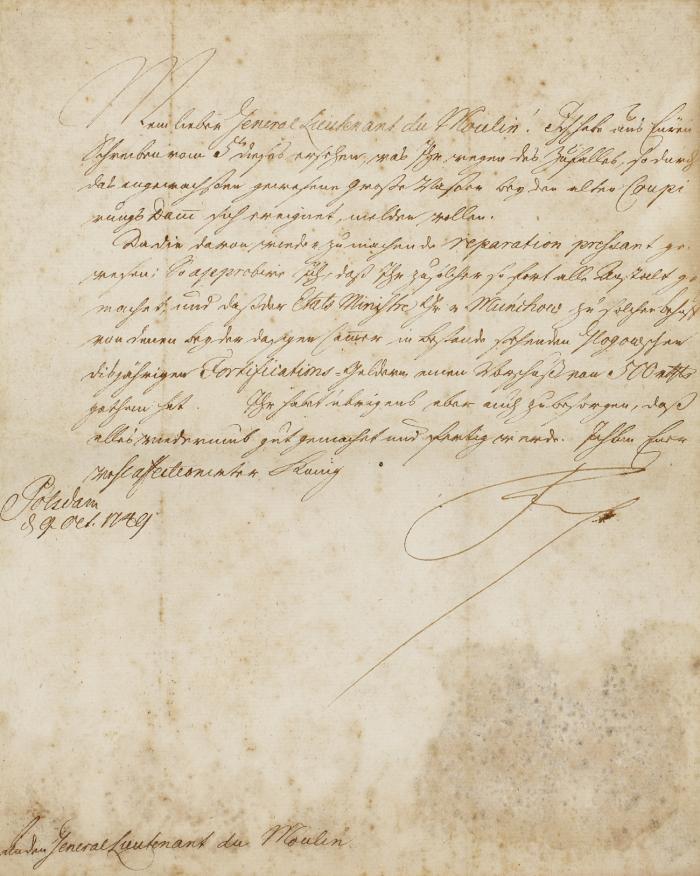 Mein lieber General Lieutenant du Moulin! Ich habe aus Eurem
Schreiben vom 5ten dieses ersehen, was Ihr, wegen des Zufalles, so durch
das angewachsen gewesene große Wasser bey den alten Coupi-
rungs Dam sich ereignet, melden wollen.
Da die davon wieder zu machende reparation pressant ge-
wesen; So approbire Ich, daß Ihr zu solcher sofort alle Anstalt ge-
machet, und daß der Etats Ministre Gr. v. Münchow zu solchem Behuf
von denen bey der dasigen Cammer in Bestande stehenden Glogowschen
diesjährigen Fortifications-Geldern einen Vorschuß von 500 rthlr
gethan hat. Ihr habt übrigens aber auch zu besorgen, daß
alles wiederumb gut gemachet und fertig werde. Ich bin Euer
wohl affectionirter König
Potsdam
d 9 Oct. 1749
F
An den General Lieutenant du Moulin.